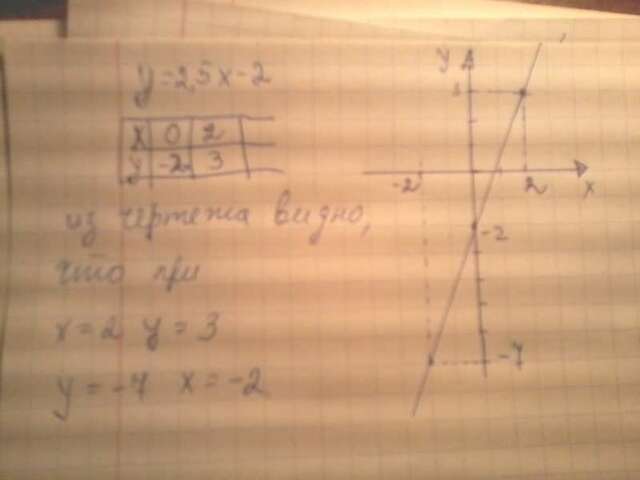 y=2,5x-2
x 0 2
y -2 3
из чертежа видно,
что при
x=2 y=3
y=-7 x=-2
y
3
-2 2 x
-2
-7